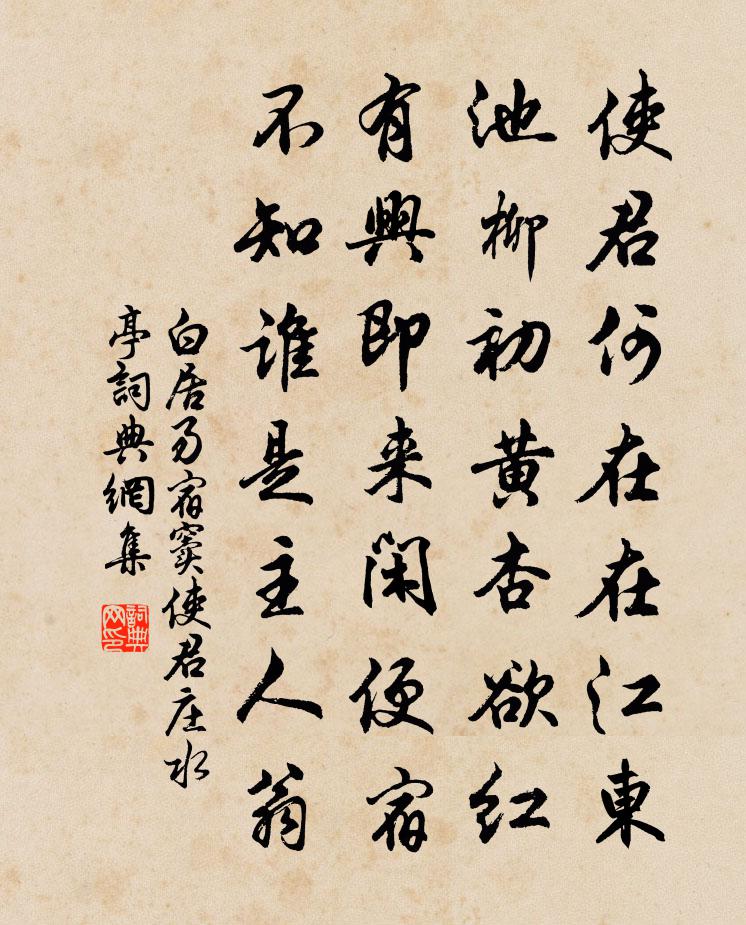 使君何在在江東
池柳初黃杏欲紅
有興即来闲便宿
不知誰是主人翁
白居易宿窦使君庄水
亭詞典網集
詞典
网印